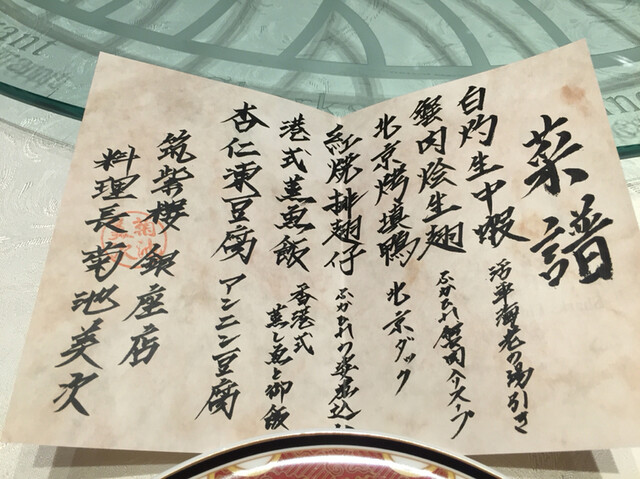 菜譜
白灼生中蝦
活車海老の湯引き
蟹肉燴生翅
ふかひれ蟹肉入りスープ
北京烤填鴨
北京ダック
紅焼排翅仔
ふかひれの姿煮込み
港式蒸魚飯
香港式
蒸し魚と御飯
杏仁凍豆腐
アンニン豆腐
筑紫樓銀座店
料理長菊池美次